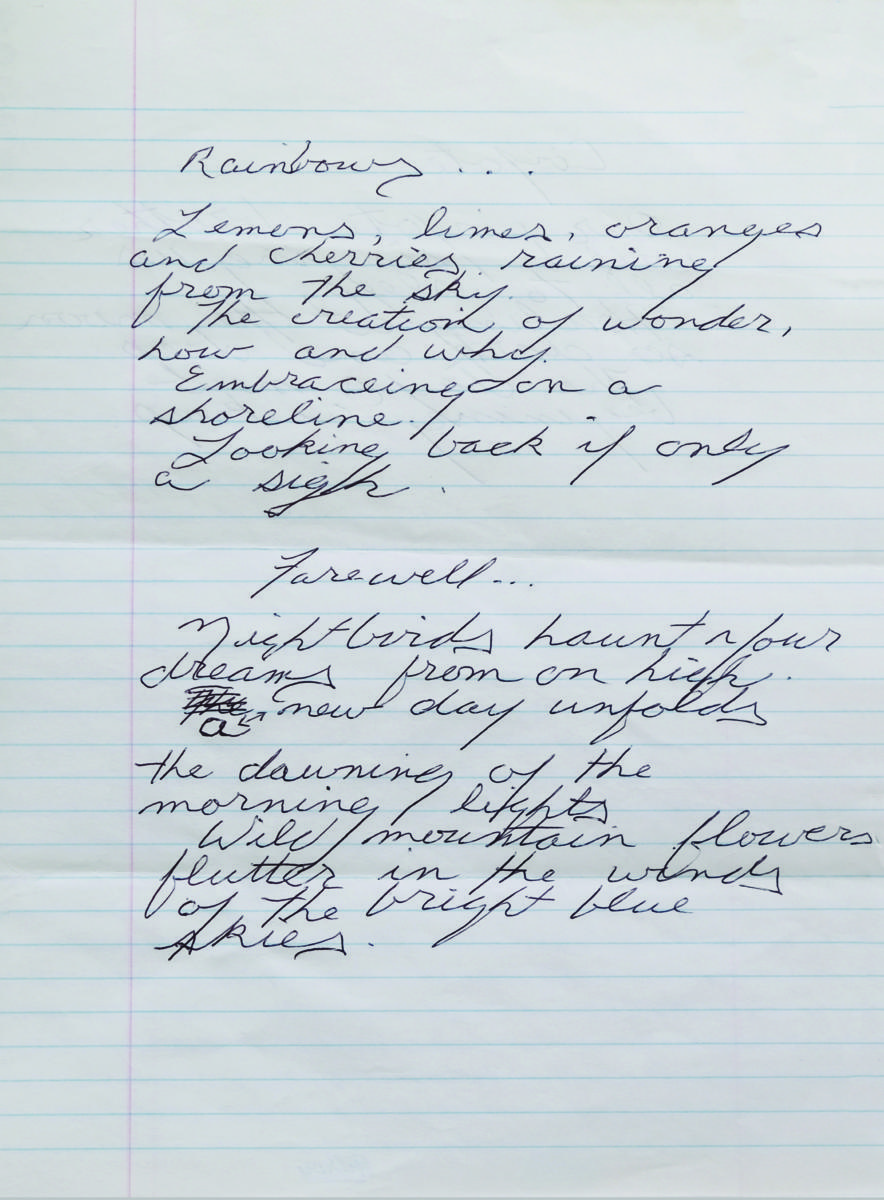 Rainbows ....
Lemons, limes, oranges
and cherries raining
from the sky.
The creation of wonder,
how and why.
Embraceing on a
shoreline.
Looking back if only
a sigh.
Farewell...
Nightbirds haunt your
dreams from on high.
a new day unfolds
the dawning of the
morning lights
Wild mountain flowers
flutter in the winds
of the bright blue
skies.